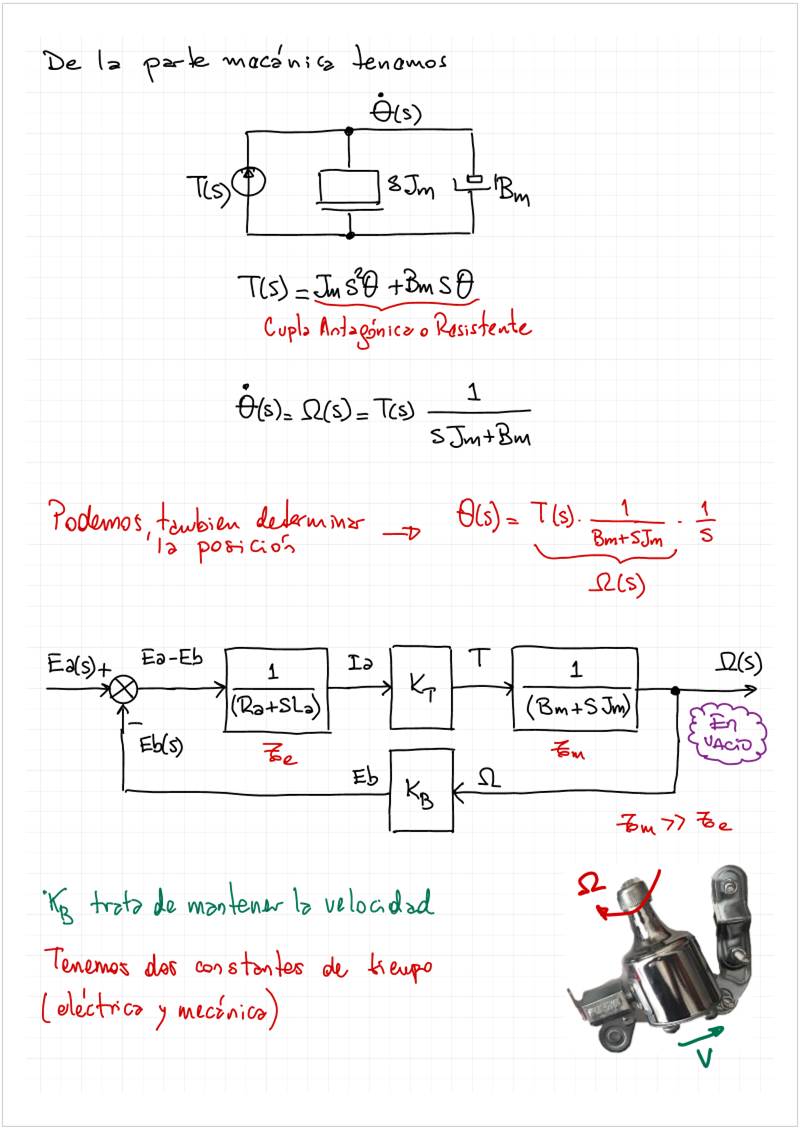 De la parte macánica tenamos
θ̇(s)
T(s)
sJm
Bm
T(s) = Jm s²θ + Bm s θ
Cupla Antagónica o Resistente
θ̇(s) = Ω(s) = T(s) 1/(sJm+Bm)
Podemos, tambien determinar → θ(s) = T(s) · 1/(Bm+sJm) · 1/s
la posición
Ω(s)
Ea(s) + Ea-Eb 1/(Ra+SLa) Ia K_T T 1/(Bm+SJm) Ω(s)
−
Eb(s) τe τm En
VACIO
Eb K_B Ω
τm >> τe
K_B trata de mantener la velocidad
Ω
Tenemos dos constantes de tiempo
(eléctrica y mecánica)
V